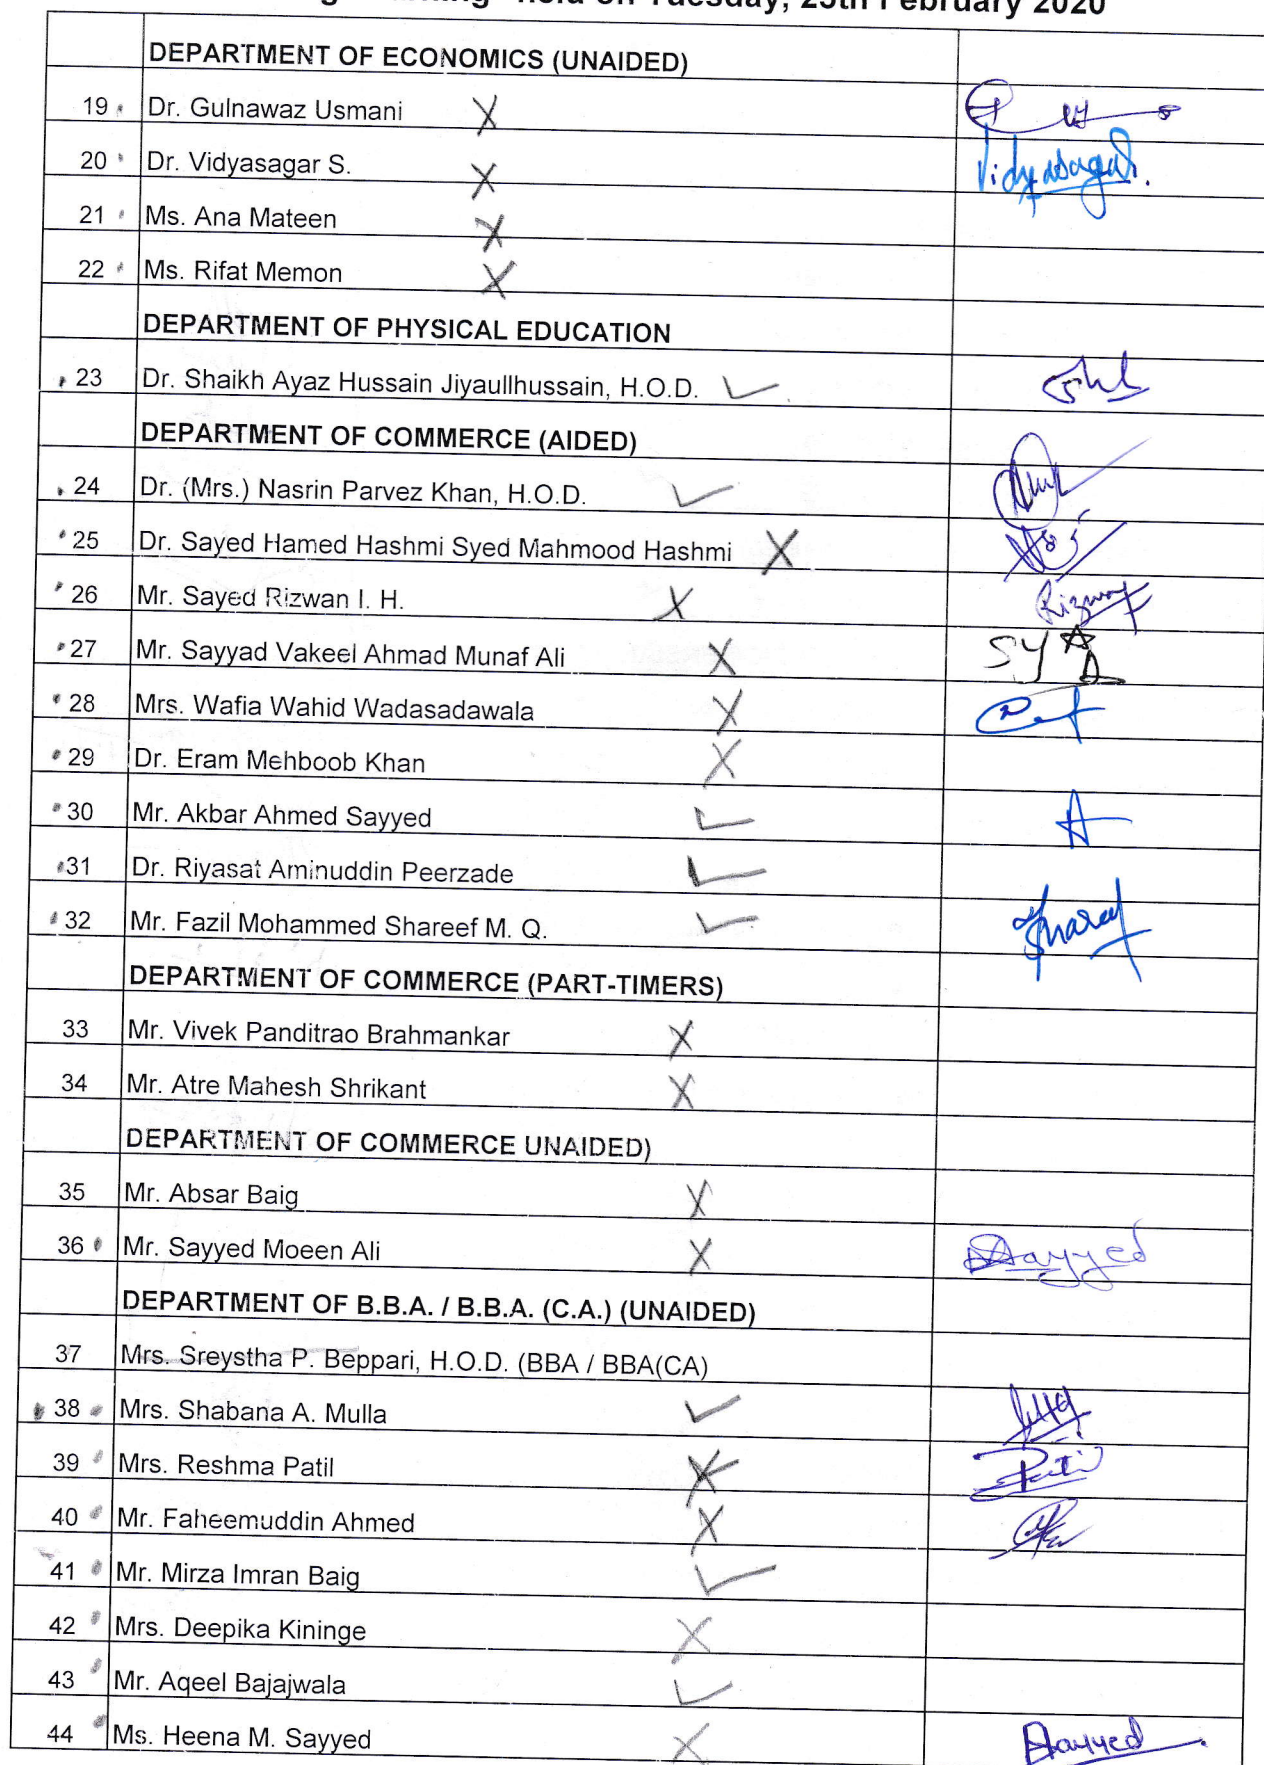 held on Tuesday, 25th February 2020
DEPARTMENT OF ECONOMICS (UNAIDED)
19 Dr. Gulnawaz Usmani X
20 Dr. Vidyasagar S. X Vidyasagar.
21 Ms. Ana Mateen X
22 Ms. Rifat Memon X
DEPARTMENT OF PHYSICAL EDUCATION
23 Dr. Shaikh Ayaz Hussain Jiyaullhussain, H.O.D. ✓
DEPARTMENT OF COMMERCE (AIDED)
24 Dr. (Mrs.) Nasrin Parvez Khan, H.O.D. ✓
25 Dr. Sayed Hamed Hashmi Syed Mahmood Hashmi X
26 Mr. Sayed Rizwan I. H. X Rizwan
27 Mr. Sayyad Vakeel Ahmad Munaf Ali X
28 Mrs. Wafia Wahid Wadasadawala X
29 Dr. Eram Mehboob Khan X
30 Mr. Akbar Ahmed Sayyed ✓ A
31 Dr. Riyasat Aminuddin Peerzade ✓
32 Mr. Fazil Mohammed Shareef M. Q. ✓ Shareef
DEPARTMENT OF COMMERCE (PART-TIMERS)
33 Mr. Vivek Panditrao Brahmankar X
34 Mr. Atre Mahesh Shrikant X
DEPARTMENT OF COMMERCE UNAIDED)
35 Mr. Absar Baig X
36 Mr. Sayyed Moeen Ali X Sayyed
DEPARTMENT OF B.B.A. / B.B.A. (C.A.) (UNAIDED)
37 Mrs. Sreystha P. Beppari, H.O.D. (BBA / BBA(CA)
38 Mrs. Shabana A. Mulla ✓
39 Mrs. Reshma Patil X Patil
40 Mr. Faheemuddin Ahmed X
41 Mr. Mirza Imran Baig ✓
42 Mrs. Deepika Kininge X
43 Mr. Aqeel Bajajwala ✓
44 Ms. Heena M. Sayyed X Sayyed